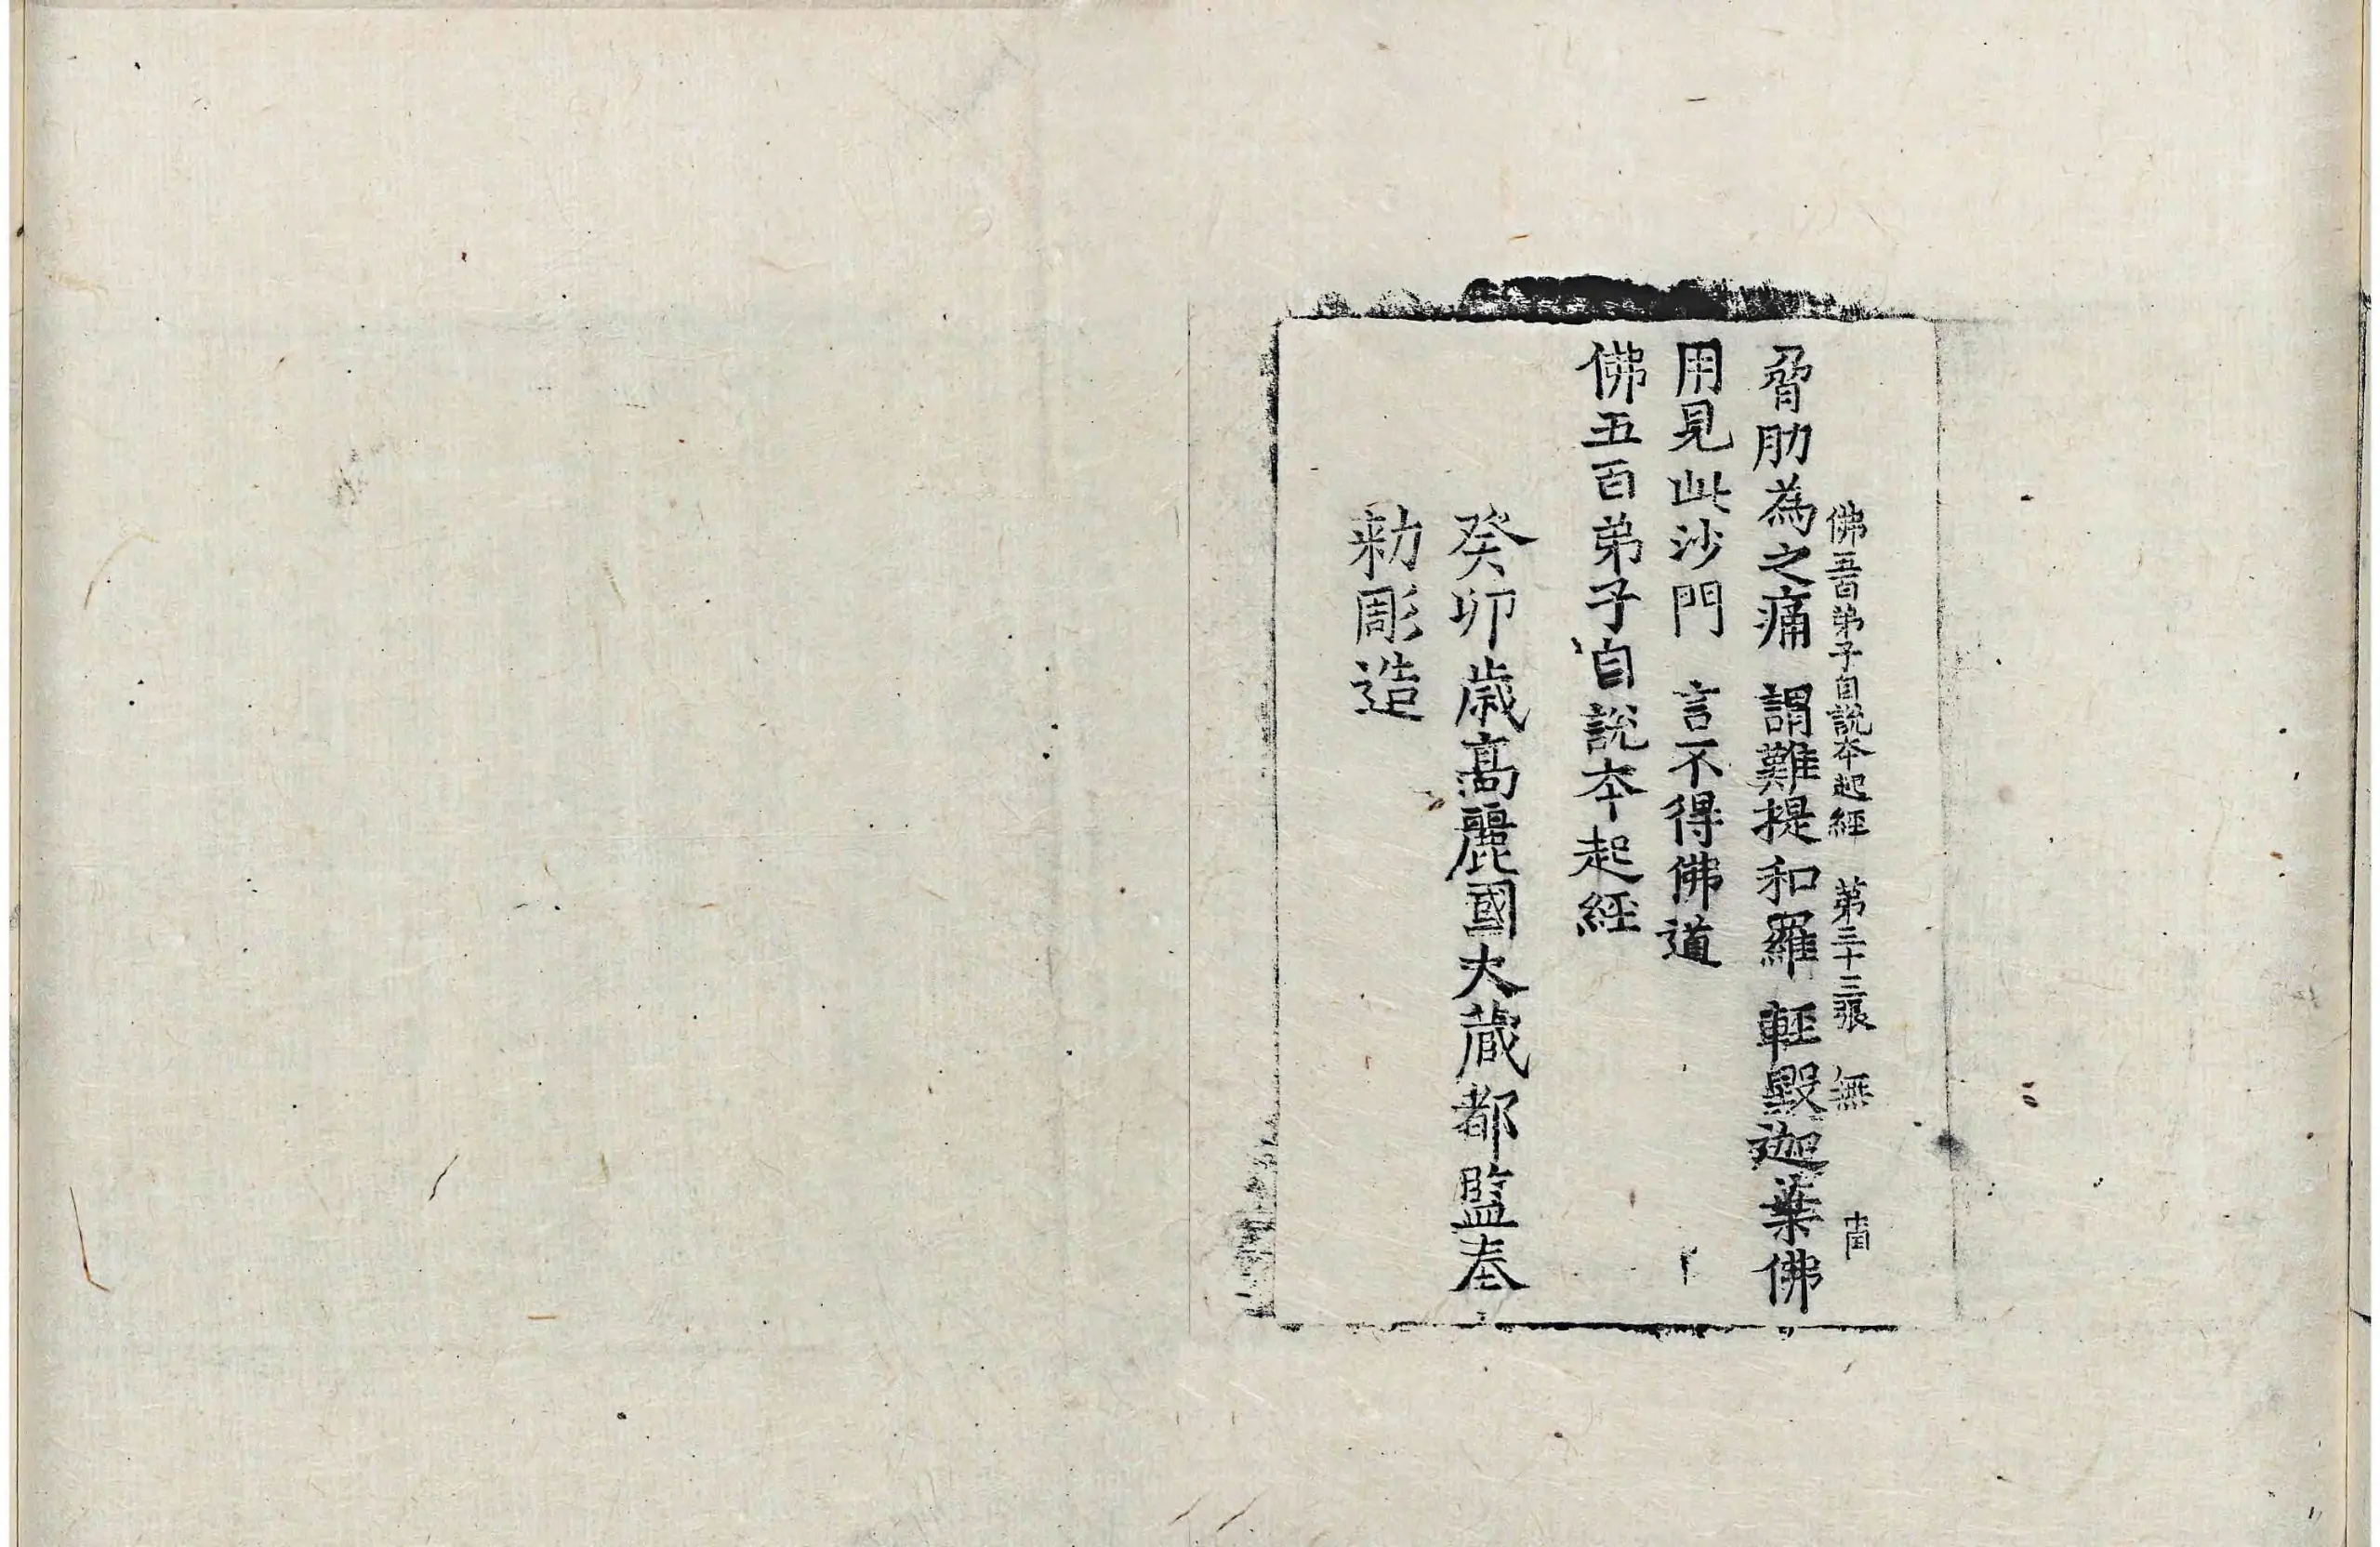 佛五百弟子自說夲起經 第三十三張 無
脅肋為之痛 謂難提和羅 輕毀迦葉佛
用見此沙門 言不得佛道
佛五百弟子自說夲起經
癸卯歲高麗國大藏都監奉
勑彫造